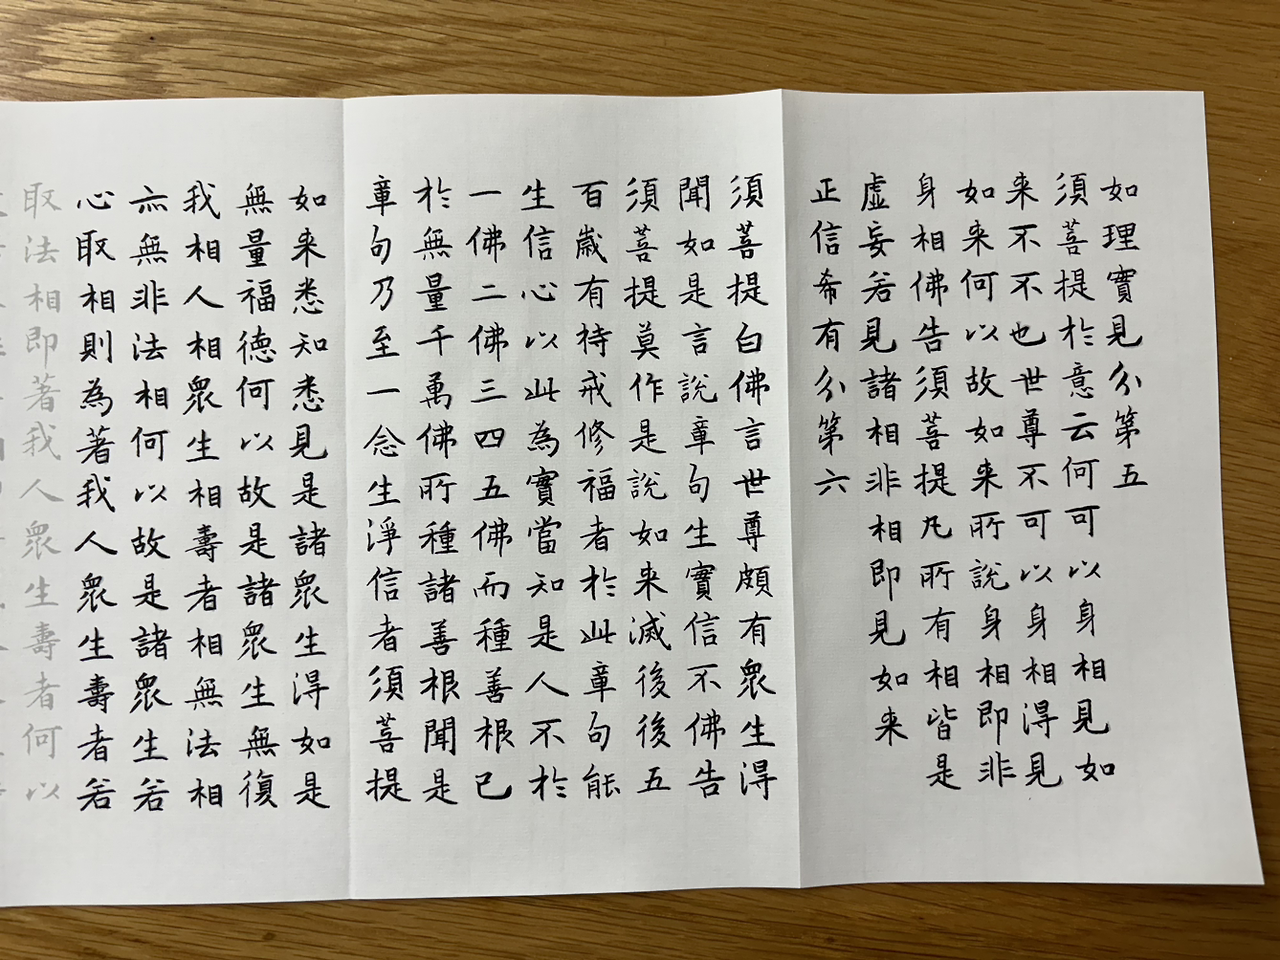 如理實見分第五
須菩提於意云何可以身相見如
来不不也世尊不可以身相得見
如来何以故如来所說身相即非
身相佛告須菩提凡所有相皆是
虛妄若見諸相非相即見如来
正信希有分第六
須菩提白佛言世尊頗有衆生得
聞如是言說章句生實信不佛告
須菩提莫作是說如来滅後後五
百歲有持戒修福者於此章句能
生信心以此為實當知是人不於
一佛二佛三四五佛而種善根已
於無量千萬佛所種諸善根聞是
章句乃至一念生淨信者須菩提
如来悉知悉見是諸衆生得如是
無量福德何以故是諸衆生無復
我相人相衆生相壽者相無法相
亦無非法相何以故是諸衆生若
心取相則為著我人衆生壽者若
取法相即著我人衆生壽者何以